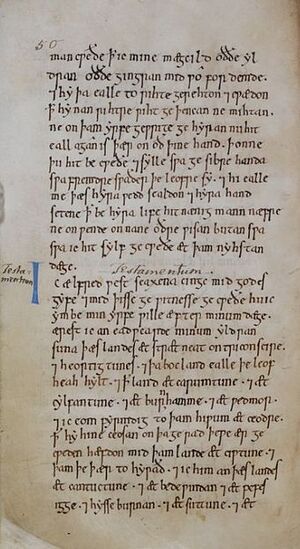 50
man cƿæðe ꝥ ic mine mægcild oððe yl
dran oððe gingran mid ƿo fordemde.
⁊ hy þa ealle to rihte gerehton ⁊ cƿædon
ꝥ hy nan rihtre riht geþencan ne mihtan.
ne on þam yrfe geƿrite gehyran nu hit
eall agan is þær on oð þine hand. þonne
þu hit becƿeðe ⁊ sylle sƿa gesibre handa
sƿa fremdre sƿaðer þe leofre sy. ⁊ hi ealle
me þæs hyra ƿedd sealdon ⁊ hyra hand
setene ꝥ be hyra life hit nænig mann næfre
ne onƿende on nane oðre ƿisan butan sƿa
sƿa ic hit sylf gecƿeðe æt þam nyhstan
dæge. Testamentum.
Testamentum
Ic ælfred ƿestseaxena cinge mid godes
gyfe ⁊ mid þisse geƿitnesse gecƿeðe hu ic
ymbe min yrfe ƿille æfter minum dæge.
Ærest ic an eadƿearde minum yldran
suna þæs landes æt strætneat on triconscire.
⁊ heortigtunes. ⁊ þa bocland ealle þe leof
heah hylt. ⁊ ꝥ land æt carumtune. ⁊ æt
cylfantune. ⁊ æt burnhamme. ⁊ æt ƿedmor.
⁊ ic eom fyrmdig to þam hiƿum æt ceodre.
ꝥ hy hine ceosan on þa gerad þe ƿe ær ge
cƿeden hæfdon mid þam lande æt ciƿtune. ⁊
þam þe þær to hyrað. ⁊ ic him an þæs landes
æt cantuctune. ⁊ æt bedeƿindan ⁊ æt pefes
igge. ⁊ hysseburnan. ⁊ æt suttune. ⁊ æt